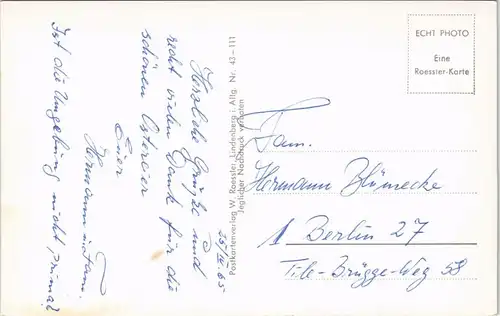 25/IV. 65
Herzliche Grüße und
recht vielen Dank für die
schönen Ostereier
Euer
Hermann u. Fam.
Ist die Umgebung nicht prima?
Postkartenverlag W. Roessler, Lindenberg i. Allg. Nr. 43-111
Jeglicher Nachdruck verboten
ECHT PHOTO
Eine
Roessler-Karte
Fam.
Hermann Blümecke
1 Berlin 27
Tile-Brügge-Weg 58